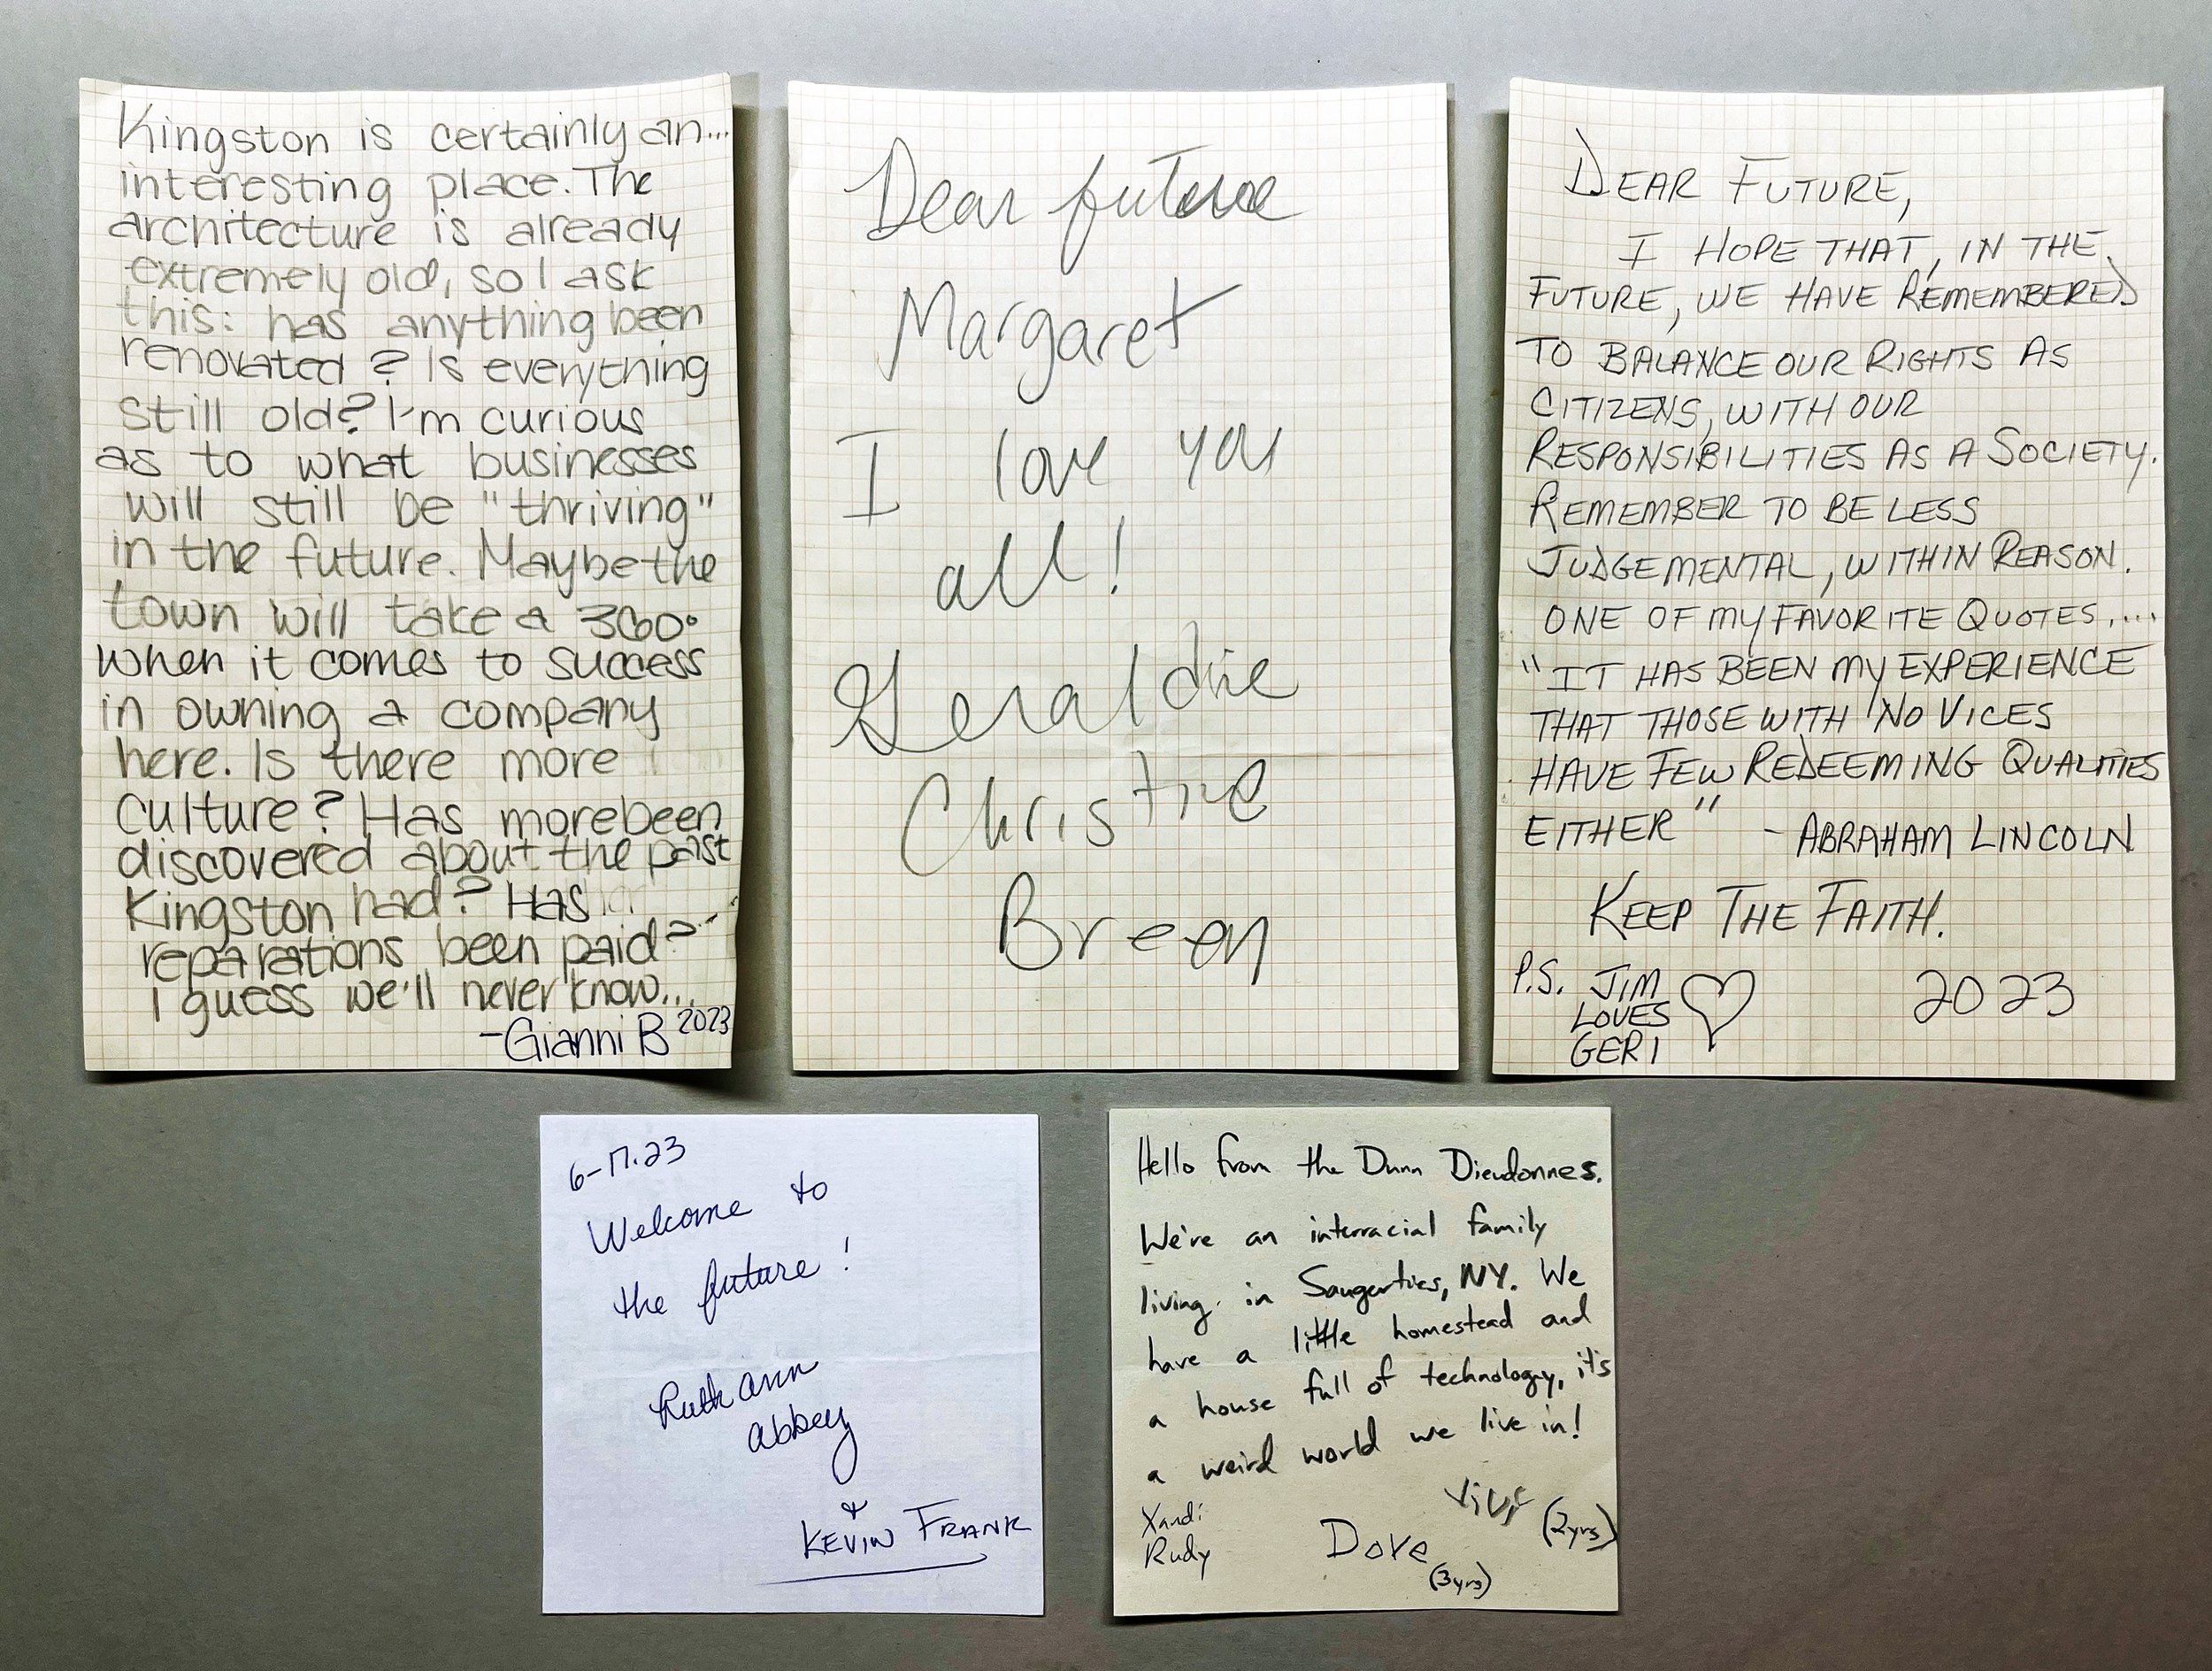 Kingston is certainly an...
interesting place. The
architecture is already
extremely old, so I ask
this: has anything been
renovated? Is everything
still old? I'm curious
as to what businesses
will still be "thriving"
in the future. Maybe the
town will take a 360°
when it comes to success
in owning a company
here. Is there more
culture? Has more been
discovered about the past
Kingston had? Has
reparations been paid?
I guess we'll never know...
-Gianni B 2023
Dear future
Margaret
I love you
all!
Geraldine
Christine
Breen
DEAR FUTURE,
I HOPE THAT, IN THE
FUTURE, WE HAVE REMEMBERED
TO BALANCE OUR RIGHTS AS
CITIZENS, WITH OUR
RESPONSIBILITIES AS A SOCIETY.
REMEMBER TO BE LESS
JUDGEMENTAL, WITHIN REASON.
ONE OF MY FAVORITE QUOTES....
"IT HAS BEEN MY EXPERIENCE
THAT THOSE WITH NO VICES
HAVE FEW REDEEMING QUALITIES
EITHER" - ABRAHAM LINCOLN
KEEP THE FAITH.
P.S. JIM
LOVES
GERI
2023
6-17.23
Welcome to
the future!
Ruth Ann
Abbey
&
KEVIN FRANK
Hello from the Dunn Dieudonnes.
We're an interracial family
living in Saugerties, NY. We
have a little homestead and
a house full of technology, it's
a weird world we live in!
Xandi
Rudy
Dove
(3yrs)
(2yrs)